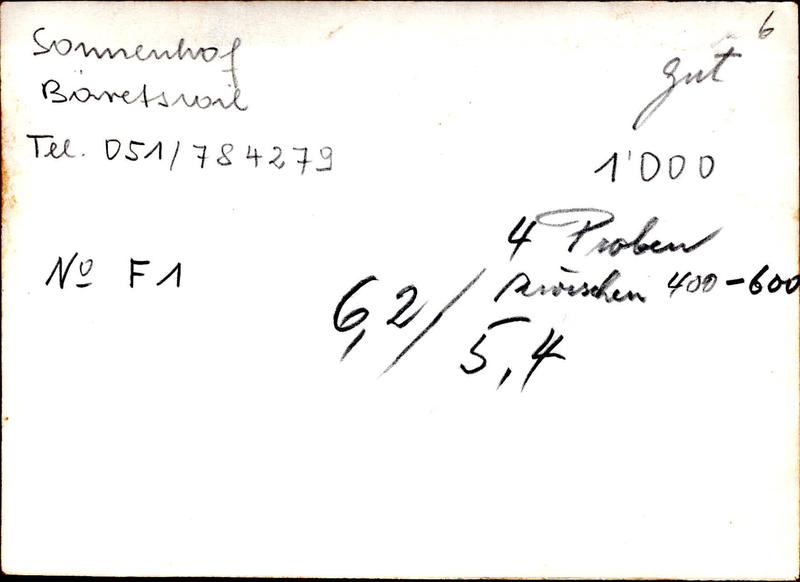 Sonnenhof
Bäretswil
Tel. 051/784279
6
gut
1'000
4 Proben
zwischen 400-600
No F1
6,2/5,4